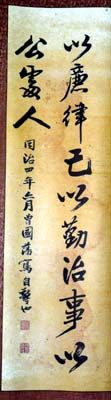 以廉律己以勤治事以
公處人
同治四年 月曾國藩寫自警也